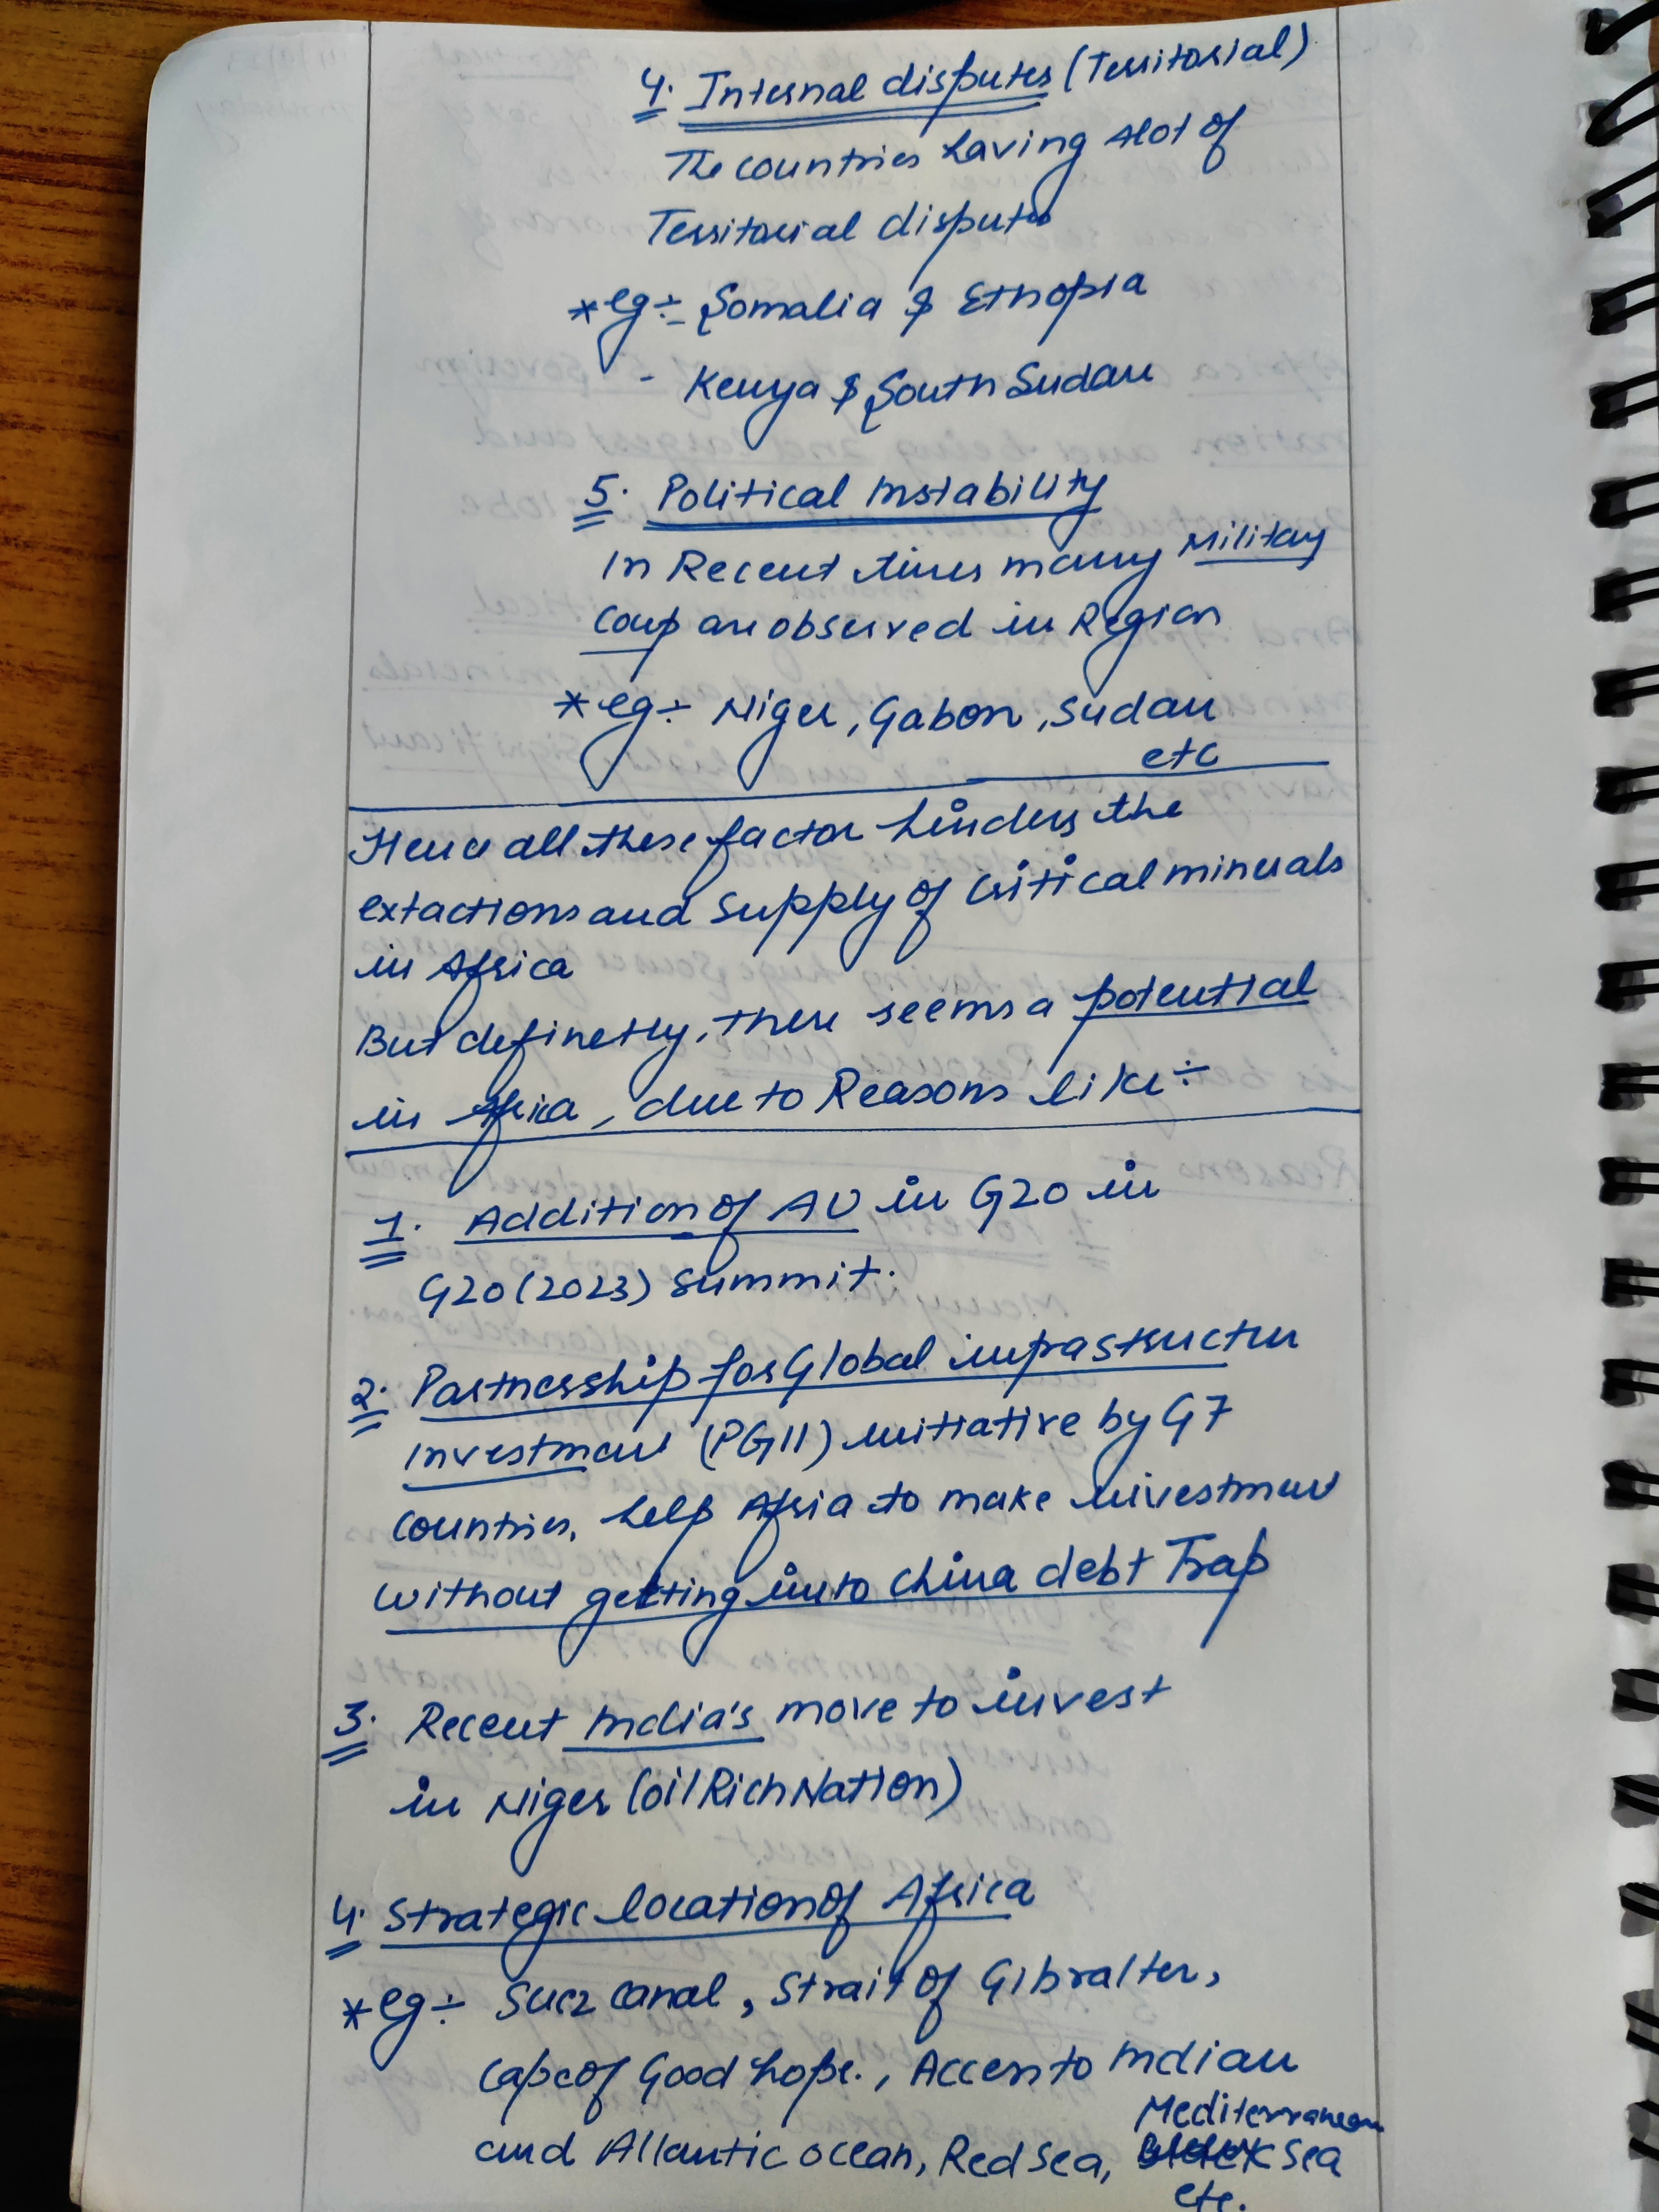 4. Internal disputes (Territorial)
The countries having alot of
Territorial disputes
*eg÷ - Somalia & Ethopia
- Kenya & South Sudan
5. Political Instability
In Recent times many Military
Coup are observed in Region
*eg÷ Niger, Gabon, Sudan
etc
Hence all these factor hinders the
extactions and supply of critical minerals
in Africa
But definetly, there seems a potential
in Africa, due to Reasons like÷
1. Addition of AU in G20 in
G20 (2023) Summit.
2. Partnership for Global infrastructure
Investment (PGII) initiative by G7
Countries, help Africa to make investment
without getting into China debt Trap
3. Recent India's move to invest
in Niger (oil Rich Nation)
4. Strategic location of Africa
*eg÷ Suez Canal, Strait of Gibralter,
Cape of Good hope., Access to Indian
and Atlantic ocean, Red Sea, Mediterranean Sea
etc.